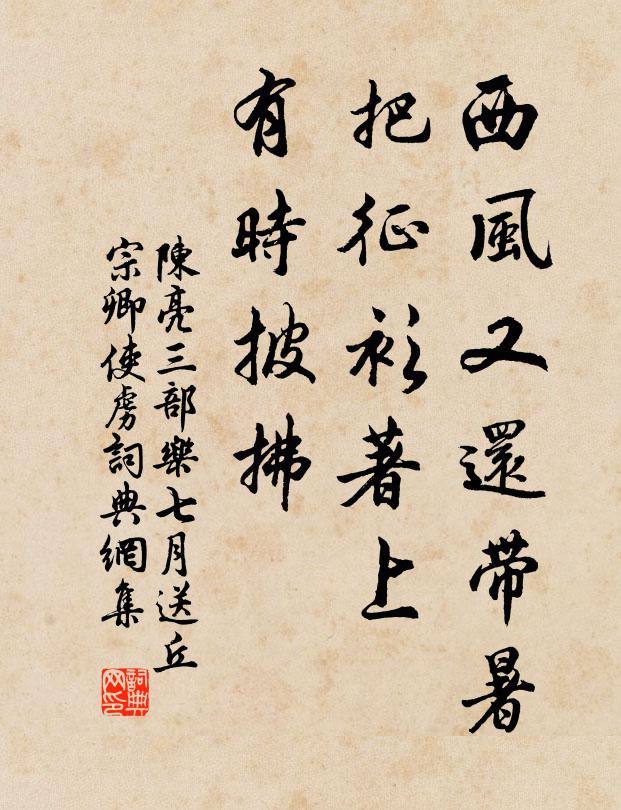 西風又還帶暑
把征衫著上
有時披拂
陳亮三部樂七月送丘
宗卿使虜詞典網集
詞典
网印